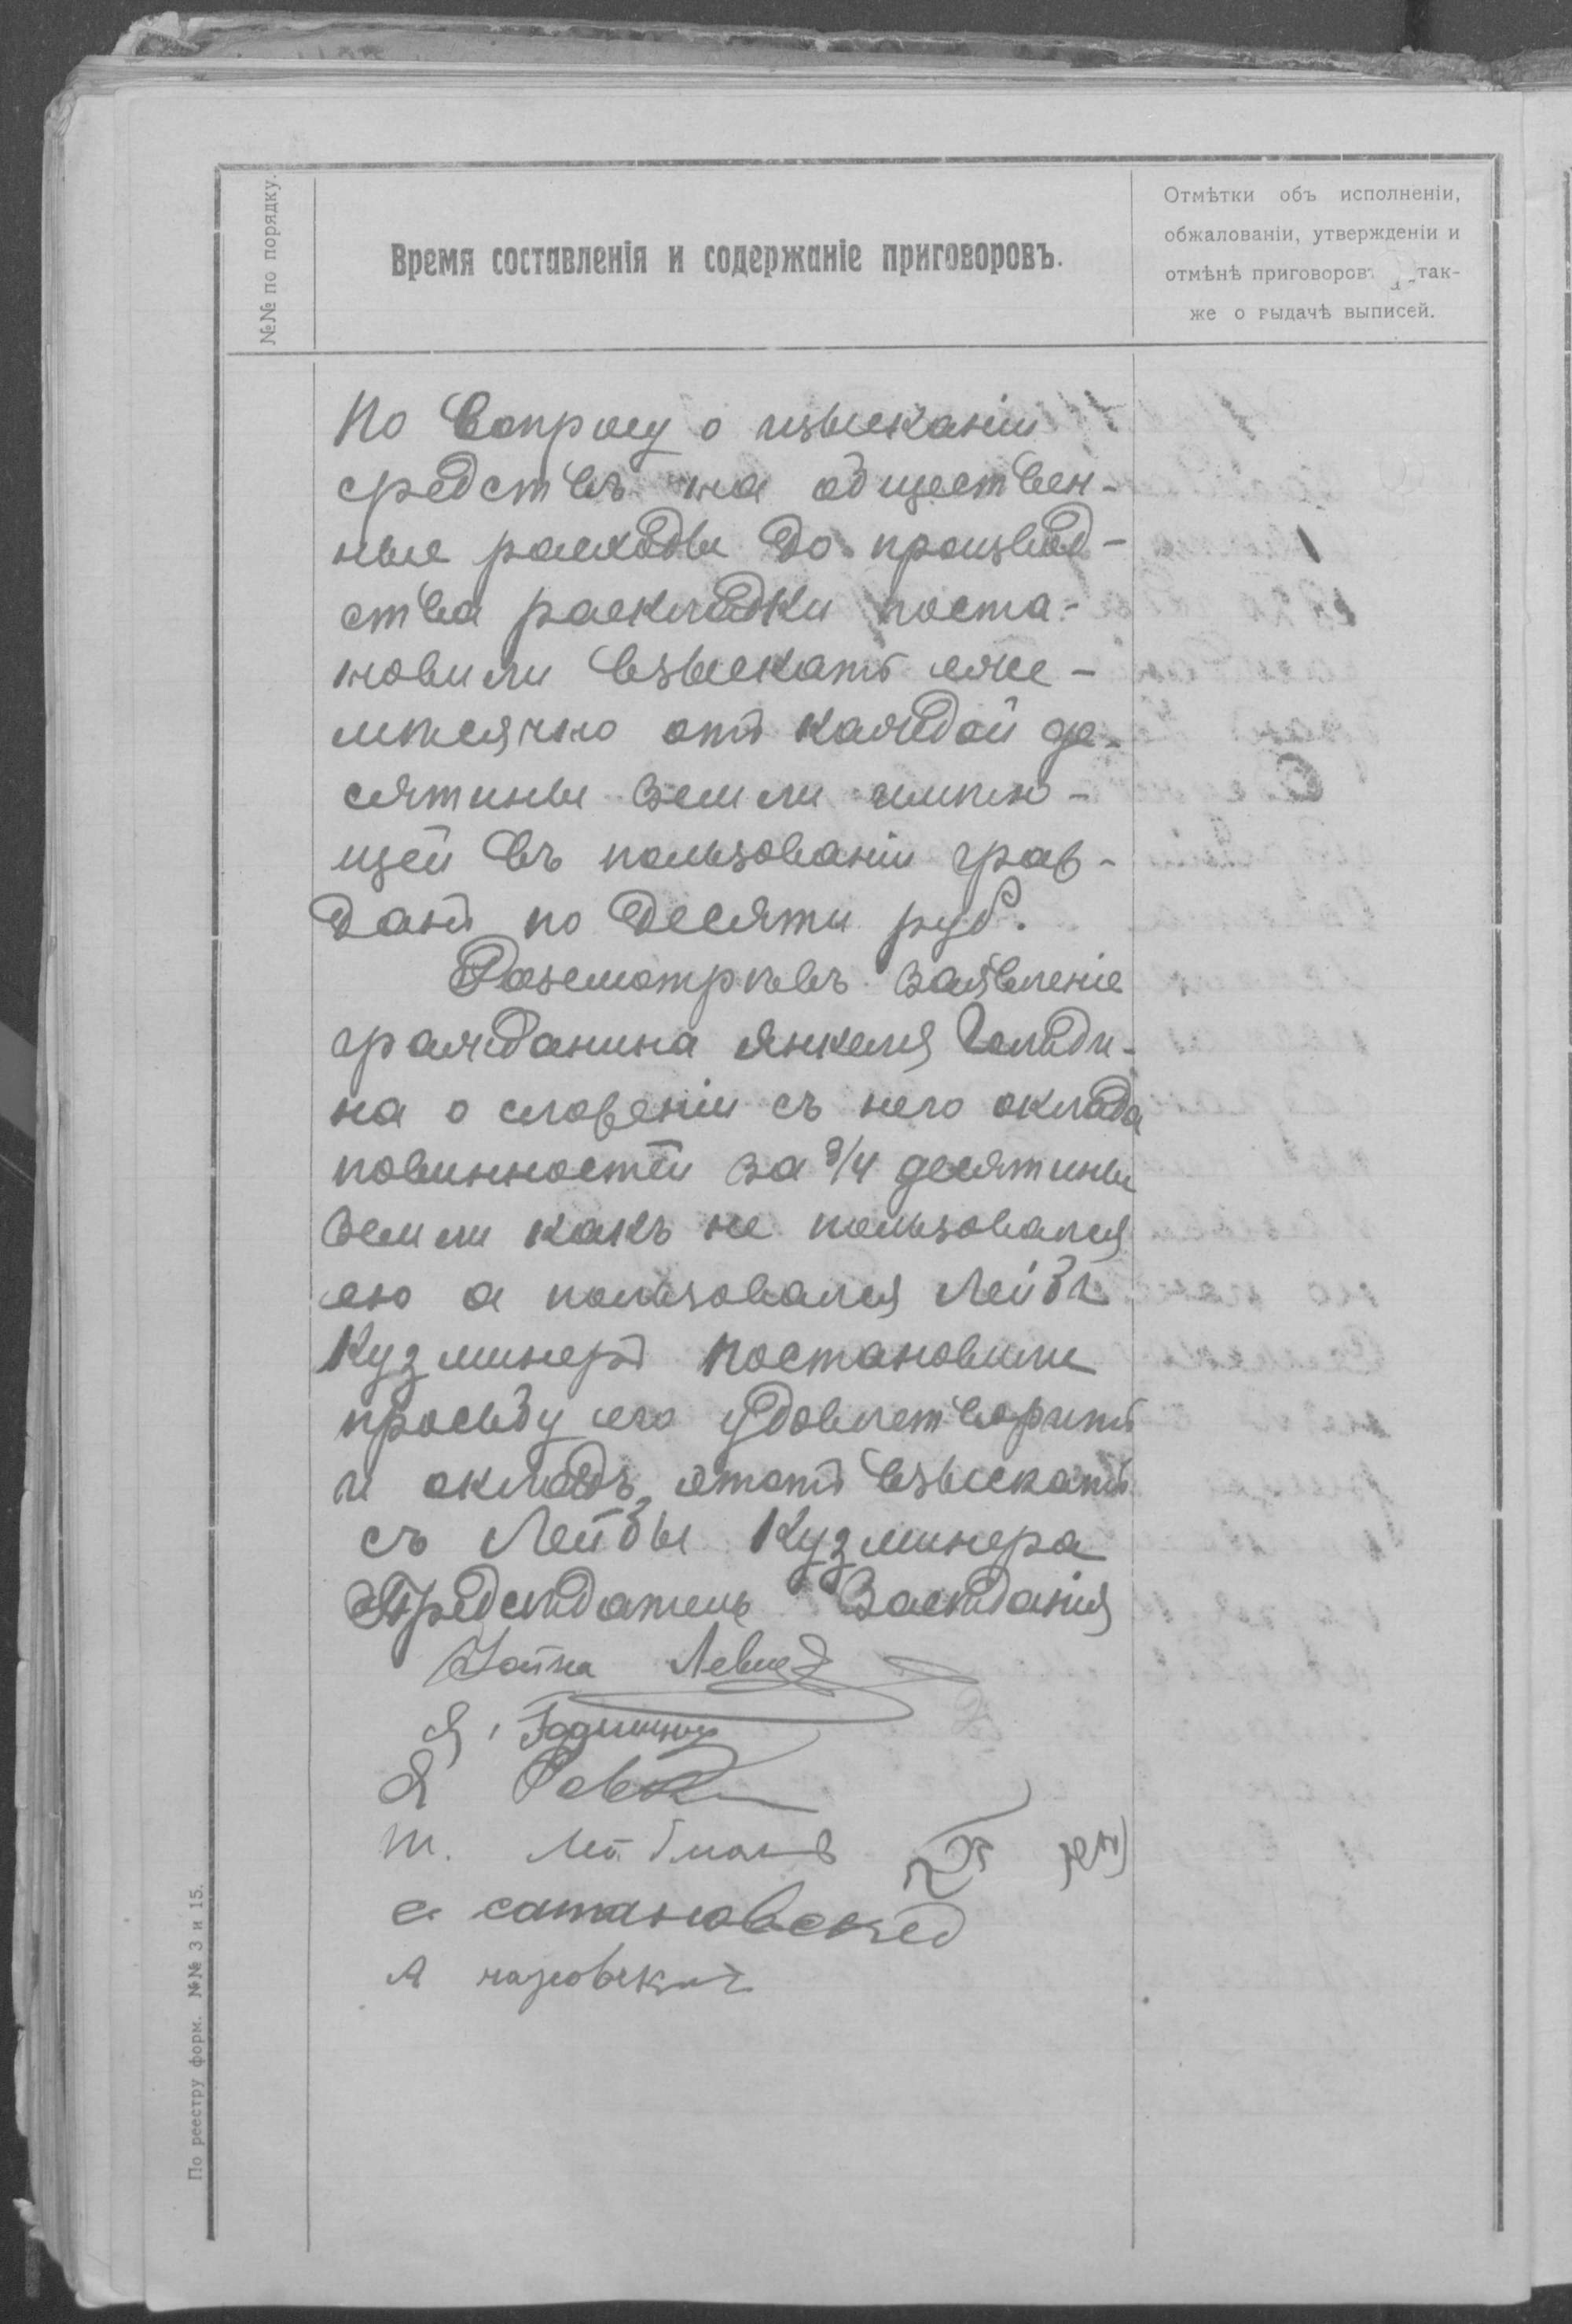 №№ по порядку.
Время составленія и содержаніе приговоровъ.
Отмѣтки объ исполненіи,
обжалованіи, утвержденіи и
отмѣнѣ приговоровъ, а так-
же о выдачѣ выписей.
По вопросу о изысканіи
средствъ на обществен-
ные расходы до производ-
ства раскладки поста-
новили взыскатъ еже-
мѣсячно отъ каждой де-
сятины земли имѣю-
щей въ пользованіи граж-
данъ по десяти руб.
Разсмотрѣвъ заявленіе
гражданина Янкеля Гольди-
на о сложеніи съ него оклада
повинностей за 3/4 десятины
земли какъ не пользовался
ею а пользовался Лейба
Кузминеръ постановили
просьбу его удовлетворитъ
и окладъ этотъ взыскатъ
съ Лейбы Кузминера
Предсѣдатель Засѣданія
Я.
Я
Ш.
С. Сатановскій
А
По реестру форм. №№ 3 и 15.